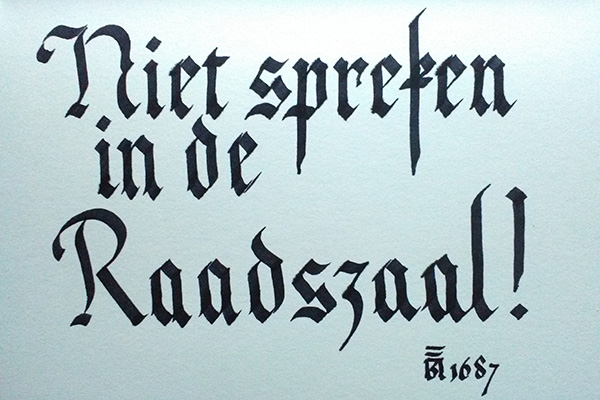 Niet spreken
in de
Raadszaal!
1687